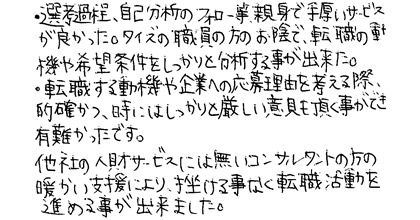 ・選考過程、自己分析のフォロー等親身で手厚いサービス
が良かった。タイズの職員の方のお陰で、転職の動
機や希望条件をしっかりと分析する事が出来た。
・転職する動機や企業への応募理由を考える際、
的確かつ、時にはしっかりと厳しい意見も頂く事ができ
有難かったです。
他社の人財サービスには無いコンサルタントの方の
暖かい支援により、挫ける事なく転職活動を
進める事が出来ました。